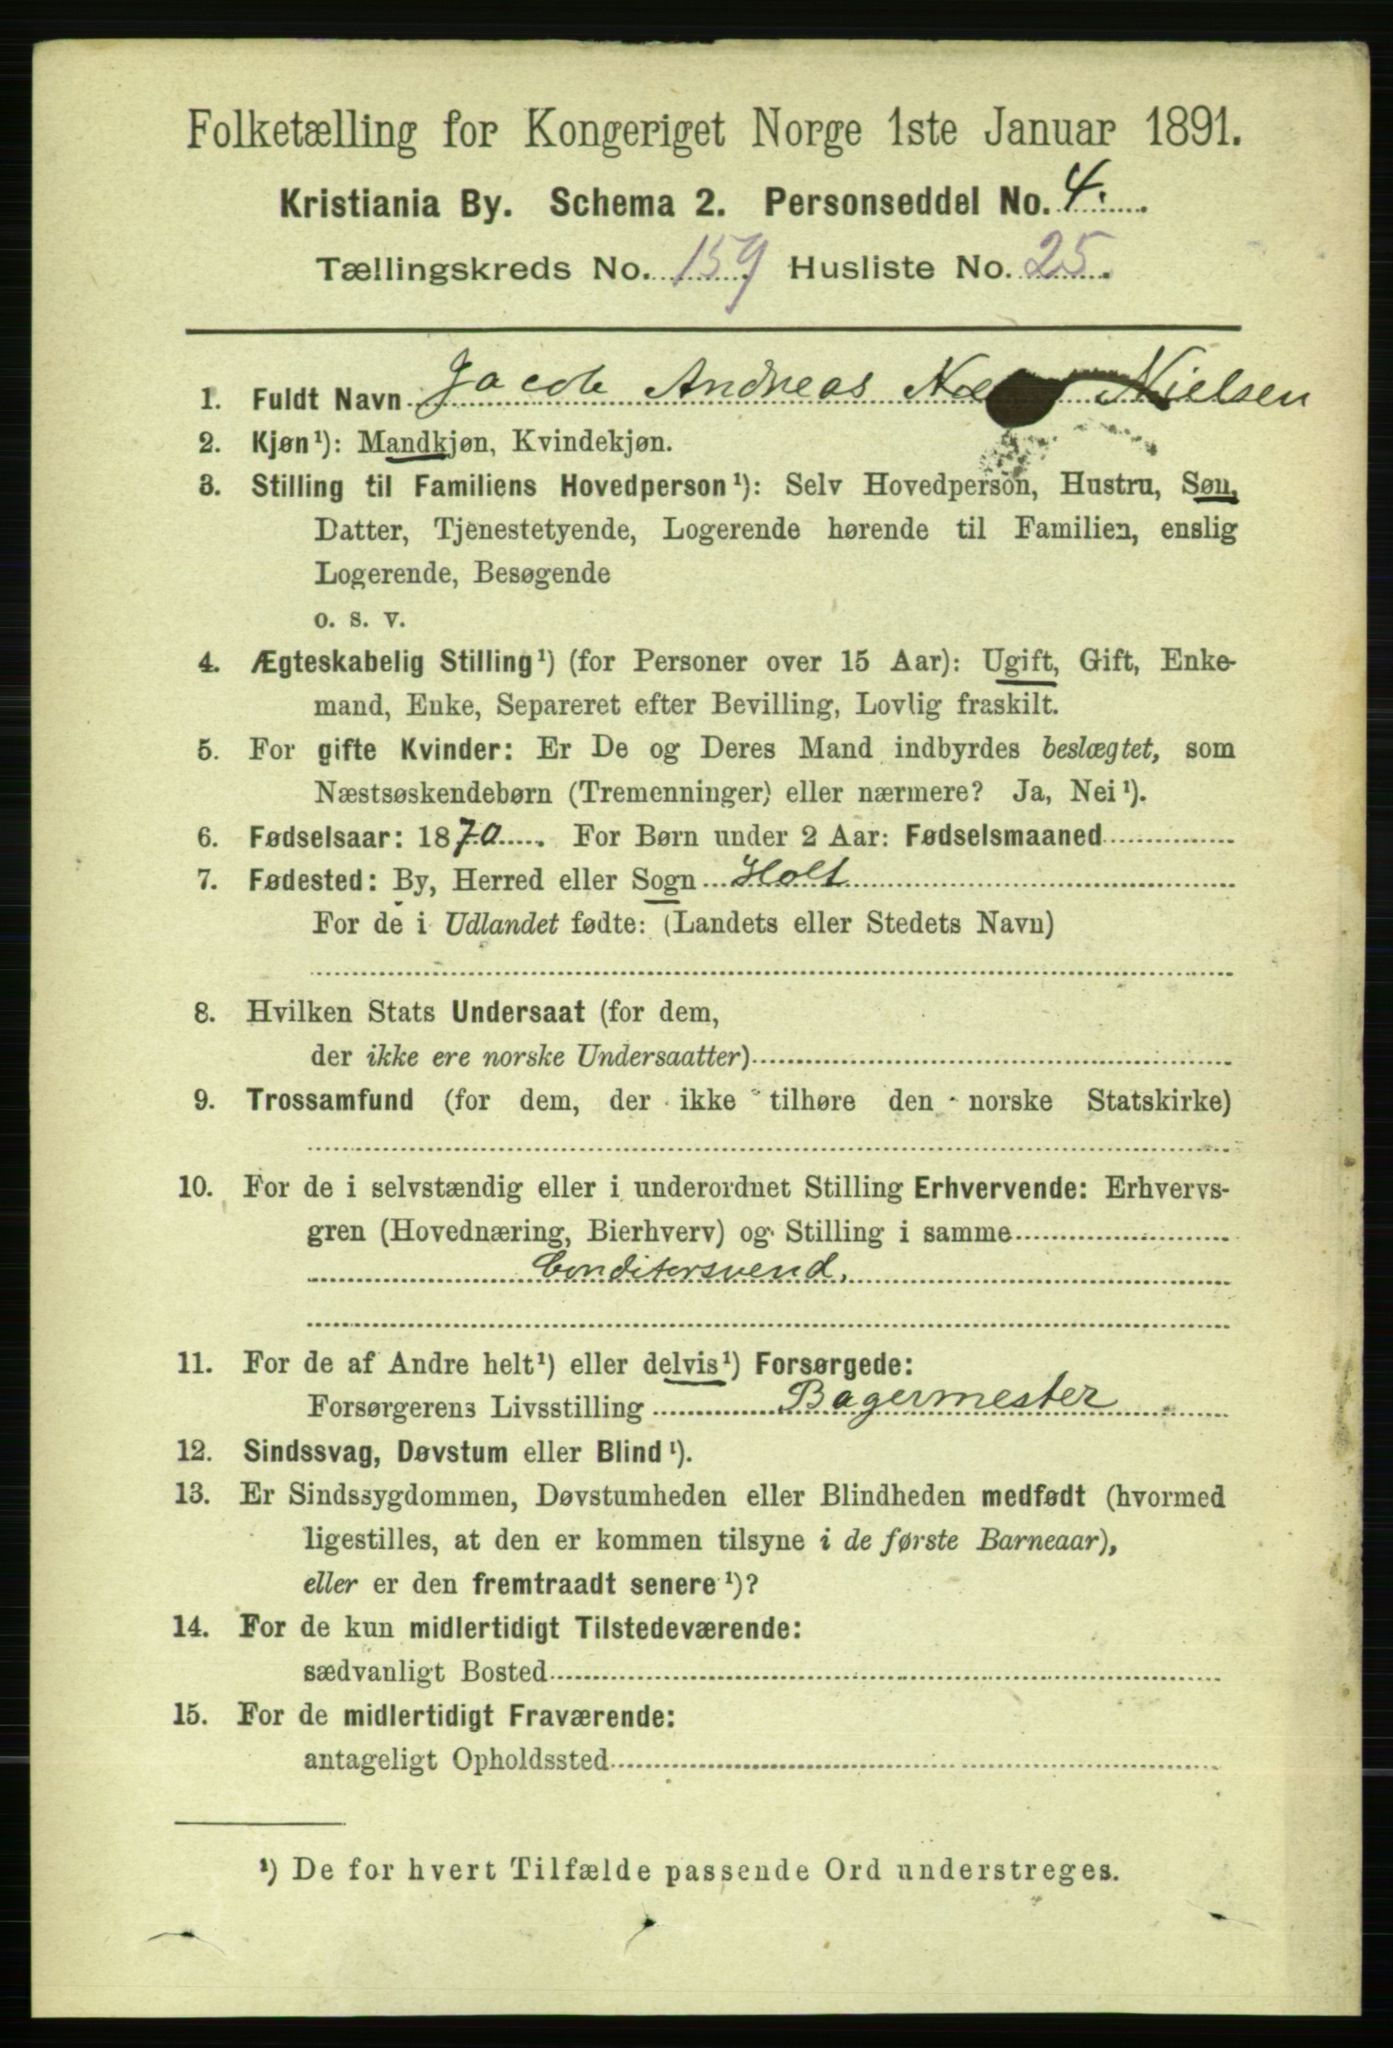 Folketælling for Kongeriget Norge 1ste Januar 1891.
Kristiania By. Schema 2. Personseddel No. 4.
Tællingskreds No. 159 Husliste No. 25.
1. Fuldt Navn Jacob Andreas Nielsen
2. Kjøn¹): Mandkjøn, Kvindekjøn.
3. Stilling til Familiens Hovedperson¹): Selv Hovedperson, Hustru, Søn,
Datter, Tjenestetyende, Logerende hørende til Familien, enslig
Logerende, Besøgende
o. s. v.
4. Ægteskabelig Stilling¹) (for Personer over 15 Aar): Ugift, Gift, Enke-
mand, Enke, Separeret efter Bevilling, Lovlig fraskilt.
5. For gifte Kvinder: Er De og Deres Mand indbyrdes beslægtet, som
Næstsøskendebørn (Tremenninger) eller nærmere? Ja, Nei¹).
6. Fødselsaar: 1870. For Børn under 2 Aar: Fødselsmaaned
7. Fødested: By, Herred eller Sogn Holt
For de i Udlandet fødte: (Landets eller Stedets Navn)
8. Hvilken Stats Undersaat (for dem,
der ikke ere norske Undersaatter)
9. Trossamfund (for dem, der ikke tilhøre den norske Statskirke)
10. For de i selvstændig eller i underordnet Stilling Erhvervende: Erhvervs-
gren (Hovednæring, Bierhverv) og Stilling i samme
Conditorsvend.
11. For de af Andre helt¹) eller delvis¹) Forsørgede:
Forsørgerens Livsstilling Bagermester
12. Sindssvag, Døvstum eller Blind¹).
13. Er Sindssygdommen, Døvstumheden eller Blindheden medfødt (hvormed
ligestilles, at den er kommen tilsyne i de første Barneaar),
eller er den fremtraadt senere¹)?
14. For de kun midlertidigt Tilstedeværende:
sædvanligt Bosted
15. For de midlertidigt Fraværende:
antageligt Opholdssted
¹) De for hvert Tilfælde passende Ord understreges.